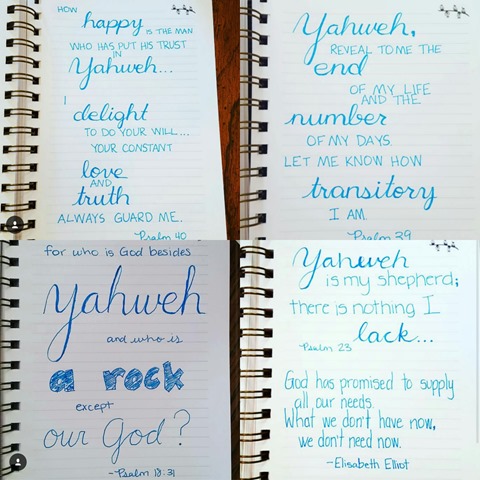 HOW
happy IS THE MAN
WHO HAS PUT HIS TRUST
IN
Yahweh...
I
delight
TO DO YOUR WILL...
YOUR CONSTANT
love
AND
truth
ALWAYS GUARD ME.
Psalm 40
Yahweh,
REVEAL TO ME THE
end
OF MY LIFE
AND THE
number
OF MY DAYS.
LET ME KNOW HOW
transitory
I AM.
Psalm 39
for who is God besides
Yahweh
and who is
a rock
except
our God?
-Psalm 18:31
Yahweh
is my shepherd;
there is nothing I
lack...
-Psalm 23
God has promised to supply
all our needs.
What we don't have now,
we don't need now.
-Elisabeth Elliot